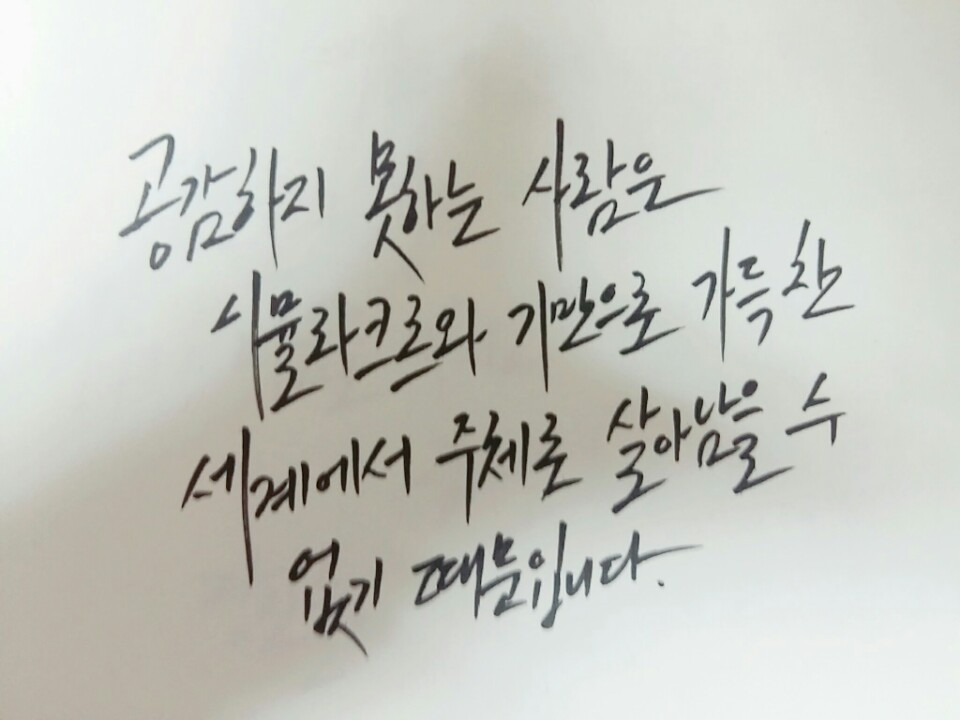 공감하지 못하는 사람은
시뮬라크르와 기만으로 가득 찬
세계에서 주체로 살아남을 수
없기 때문입니다.